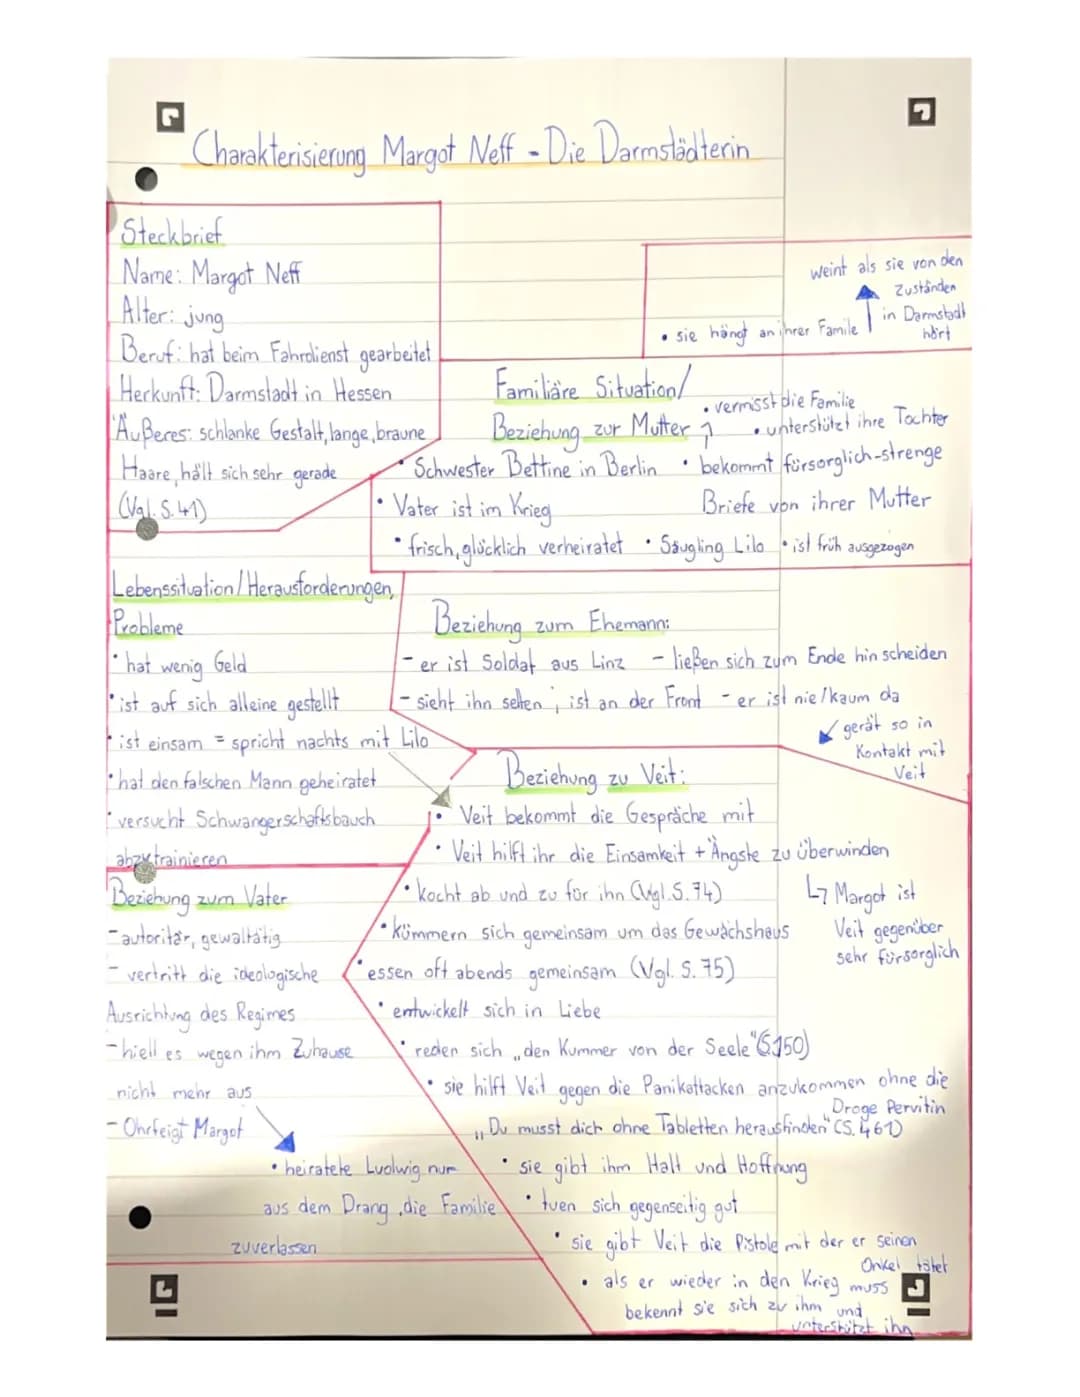 Charakterisierung Margot Neff - Die Darmstädterin
Steckbrief
Name: Margot Neff
Alter: jung
Beruf: hat beim Fahrdienst gearbeitet
Herkunft: Darmstadt in Hessen
Äußeres: schlanke Gestalt, lange, braune
Haare, hält sich sehr gerade
(Vgl. S. 41)
weint als sie von den
Zuständen
in Darmstadt
hört
• sie hängt an ihrer Familie
Familiäre Situation/
Beziehung zur Mutter
• vermisst die Familie
• unterstützt ihre Tochter
• Schwester Bettine in Berlin
• bekommt fürsorglich-strenge
Briefe von ihrer Mutter
• Vater ist im Krieg
• frisch, glücklich verheiratet • Säugling Lilo • ist früh ausgezogen
Lebenssituation/Herausforderungen,
Probleme
• hat wenig Geld
• ist auf sich alleine gestellt
• ist einsam = spricht nachts mit Lilo
• hat den falschen Mann geheiratet
• versucht Schwangerschaftsbauch
abzutrainieren
Beziehung zum Ehemann:
- er ist Soldat aus Linz - ließen sich zum Ende hin scheiden
- sieht ihn selten; ist an der Front - er ist nie/kaum da
gerät so in
Kontakt mit
Veit
Beziehung zu Veit:
• Veit bekommt die Gespräche mit
• Veit hilft ihr die Einsamkeit + Ängste zu überwinden
• kocht ab und zu für ihn (Vgl. S. 74)
↳ Margot ist
Veit gegenüber
sehr fürsorglich
• kümmern sich gemeinsam um das Gewächshaus
• essen oft abends gemeinsam (Vgl. S. 75)
• entwickelt sich in Liebe
• reden sich „den Kummer von der Seele" (S.150)
• sie hilft Veit gegen die Panikattacken anzukommen ohne die
Droge Pervitin
„Du musst dich ohne Tabletten herausfinden" (S. 461)
• sie gibt ihm Halt und Hoffnung
• tuen sich gegenseitig gut
• sie gibt Veit die Pistole mit der er seinen
Onkel tötet
• als er wieder in den Krieg muss
bekennt sie sich zu ihm und
unterstützt ihn
Beziehung zum Vater
- autoritär, gewaltätig
- vertritt die ideologische
Ausrichtung des Regimes
- hielt es wegen ihm Zuhause
nicht mehr aus
- Ohrfeigt Margot
• heiratete Ludwig nur
aus dem Drang, die Familie
zuverlassen